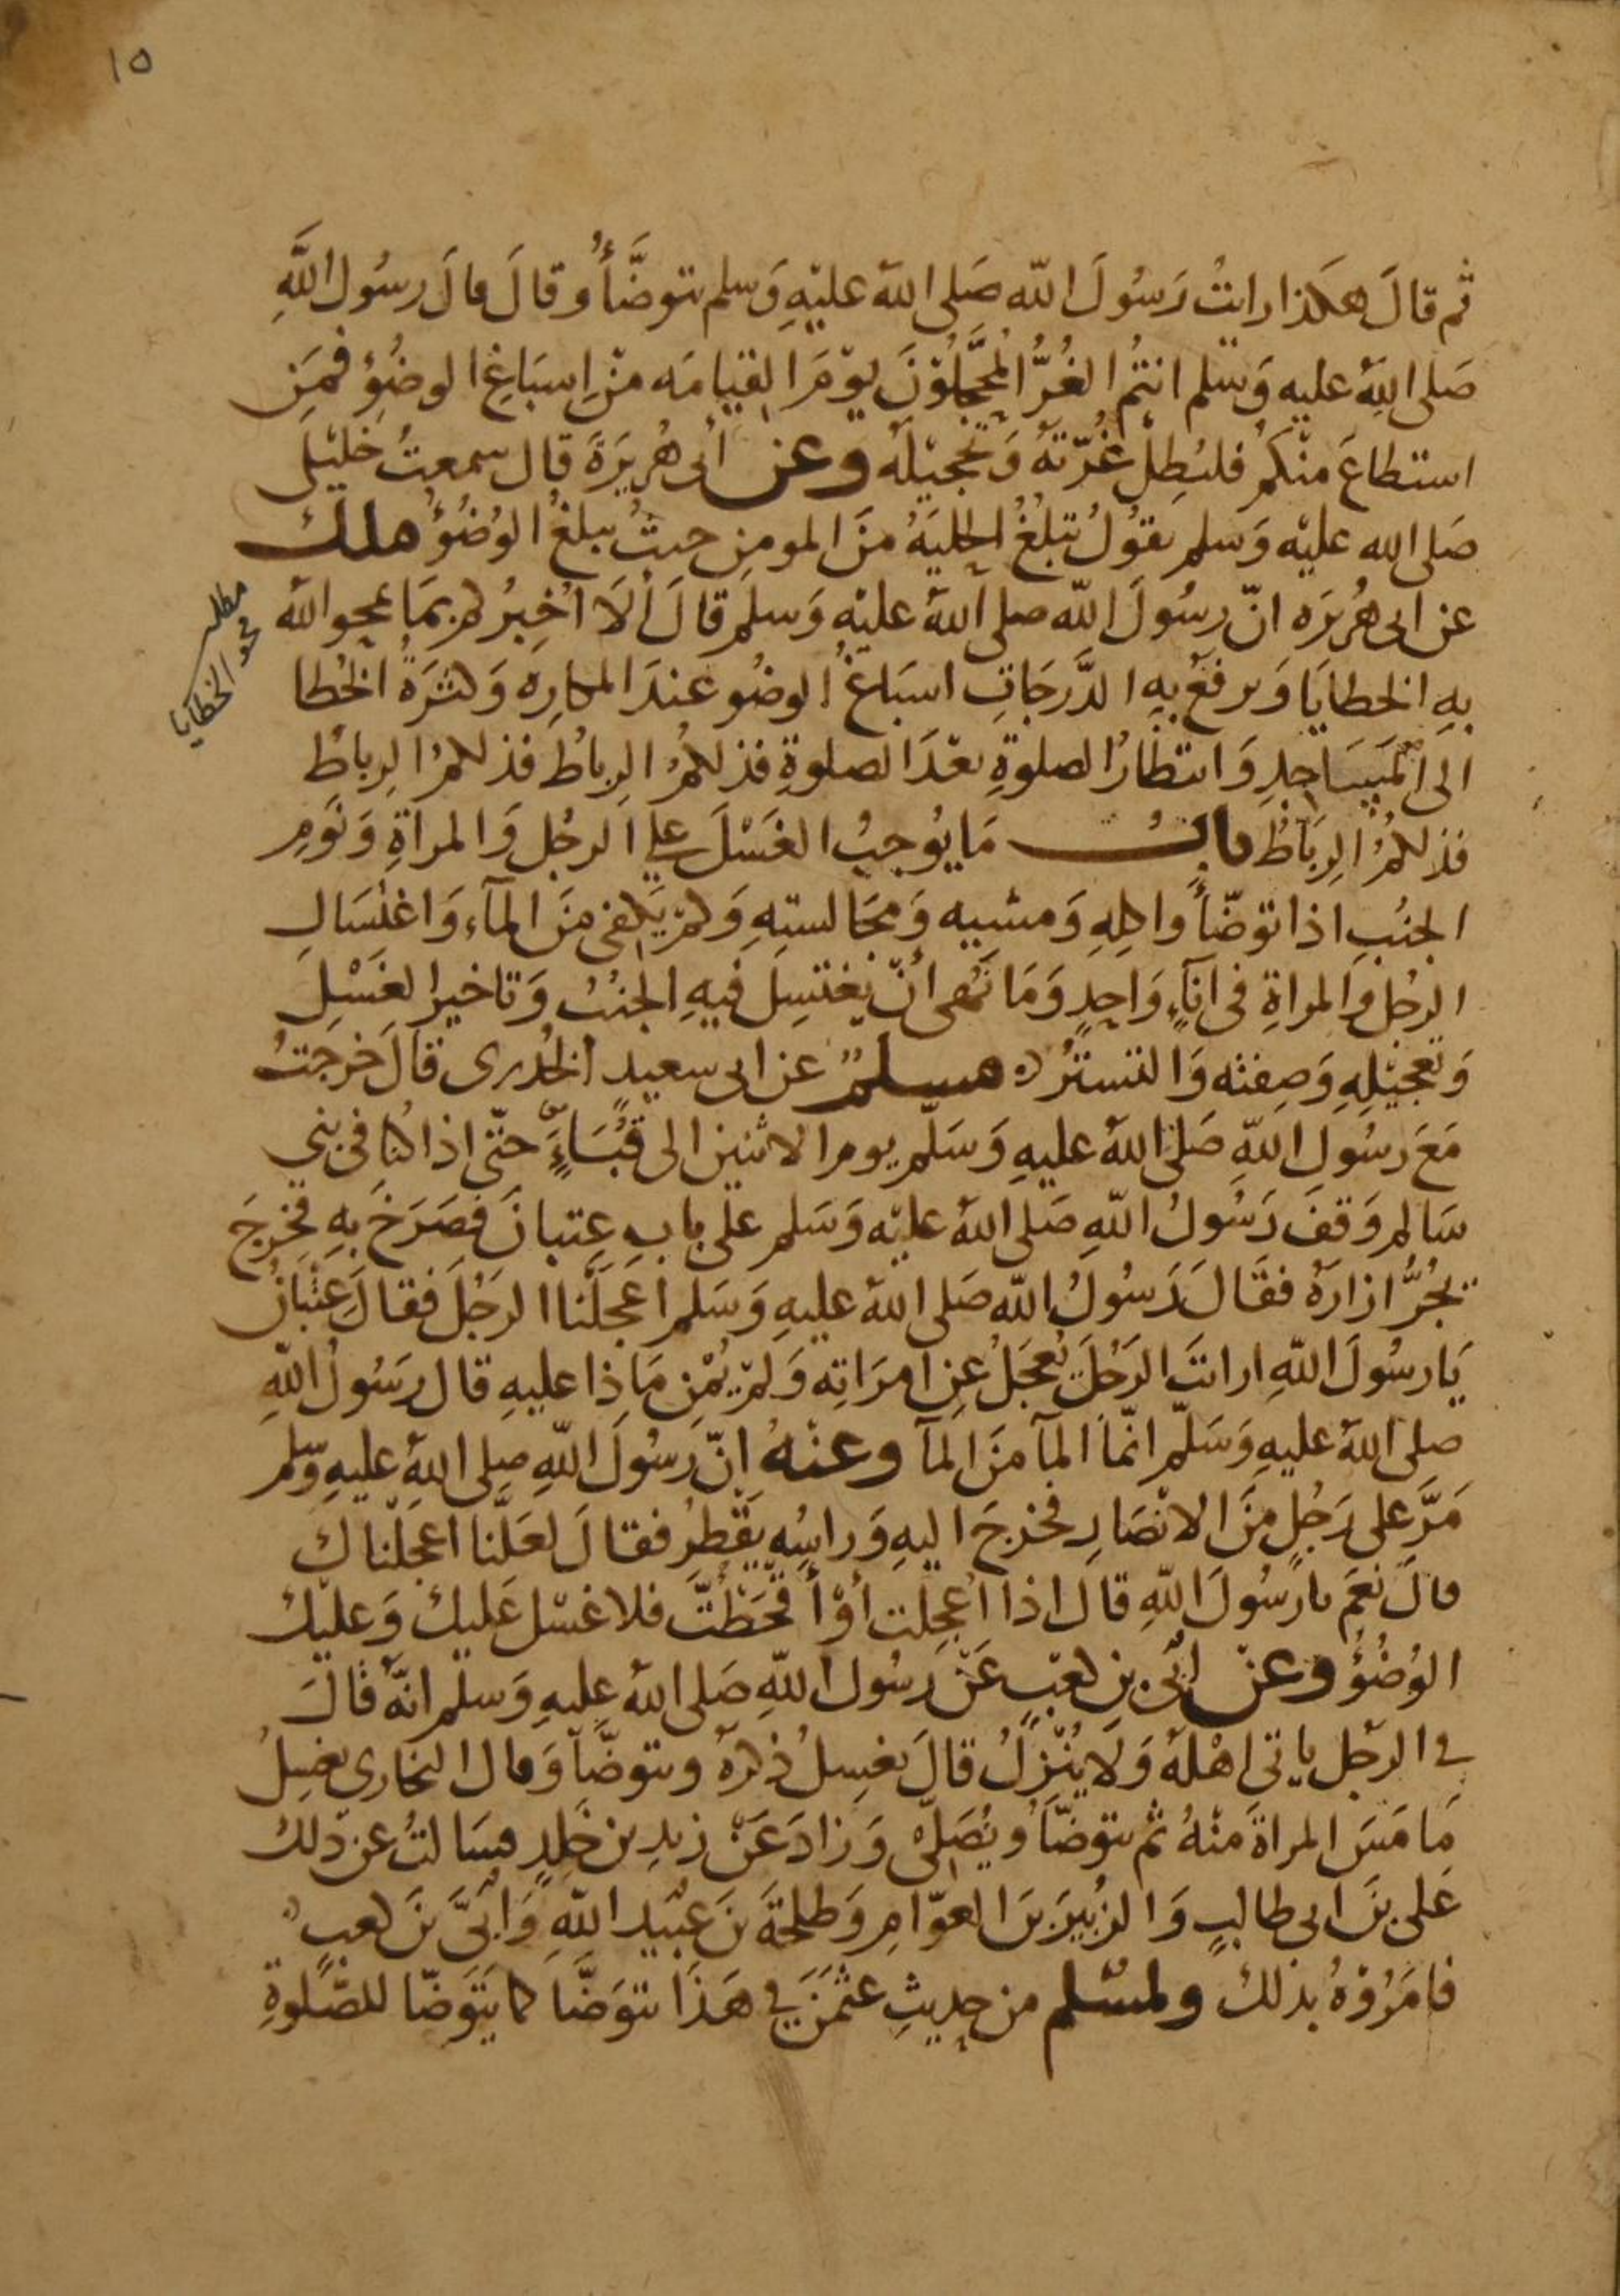 ١٥
ثم قالَ هكذا رايتُ رَسُولَ الله صَلى اللهُ عليْهِ وَسلم يتوضَّأُ وقالَ قالَ رسُول اللَّهِ
صَلى اللهُ عليه وَسلم انتمُ الغُرُّ المُحَجَّلُوْنَ يوْمَ القيامَه منْ اِسبَاغِ الوضُوءِ فمَنِ
استطاعَ منْكم فليُطِلْ غُرّتَهُ وَتحْجيْلَه وعن أبى هُريَرَةَ قال سمعتُ خليْلى
صَلى الله عليْه وَسلم يقوُلُ تبلُغُ الحليَةُ منَ المومِنِ حيثُ يبلغُ الوُضُوْءُ ملك
عن ابى هُريرَه انّ رسُولَ اللّه صلى اللهُ عليْهِ وَسلم قالَ ألَا أخبِرُكم بمَا يمحو اللهُ
مطلب
محو الخطايا
بهِ الخطايَا وَيرفعُ بهِ الدَّرجَاتِ اسبَاغُ الوضُو عندَ المكارِه وَكثرَةُ الخُطا
الى المَسَاجدِ وَانتظارُ الصلوةِ بعْدَ الصلوةِ فذلكمُ الرِباطُ فذلكمُ الرِباطُ
فذلكمُ الرِبَاطُ بابُ مَا يُوجبُ الغسْلَ على الرجُل وَالمراةِ وَنَومِ
الجنُبِ اذا توَضّأَ واكلِهِ وَمشيه وَمجَالستِهِ وَكم يَكفى منَ المآءِ وَاغتسَالِ
الرجُل والمراةِ فى انآءٍ وَاحدٍ وَمَا نَهى أنْ يغتسِلَ فيهِ الجنُبُ وَتاخير الغسْلِ
وَتعجيْلِهِ وَصفتَه وَالتستُّر ه مسلمٌ عن ابى سعيدٍ الخُدرى قالَ خرجتُ
مَعَ رسُولِ اللّهِ صَلى اللهُ عليهِ وَسَلّم يوم الاثنين الى قُبَاءٍ حتّى اذا كنا فى بني
سَالم وَقفَ رَسُولُ اللّهِ صَلى اللهُ عليْه وَسَلم على بابِ عِتبانَ فصَرَخَ بهِ فخرجَ
يجُرُّ ازارَهُ فقَالَ رَسُولُ اللّه صَلى اللهُ عليهِ وَسَلم اَعجَلْنا الرجُلَ فقالَ عِتْبانُ
يَا رسُولَ اللّهِ ارايتَ الرَجُلَ يُعجَلُ عنِ امرَاتِه وَلمْ يُمْنِ مَاذا عليهِ قال رَسُولُ اللّهِ
صلى اللهُ عليهِ وَسَلّم انّمَا المآ منَ المآ وعنْهُ انّ رَسُولَ اللّهِ صِلى اللهُ عليهِ وسّلم
مَرَّ على رَجُلٍ منَ الانْصَارِ فخرَجَ اليهِ وَراسُه يَقْطِرُ فقالَ لعَلّنا اعجلْناك
قالَ نعَم يارَسُولَ اللّهِ قالَ اذا أُعجِلت أوْ أقحَطْتَّ فلا غسْل عَليكَ وَعليْك
الوُضُوْءُ وعنْ اُبَىّ بنِ كعْبٍ عَنْ رسُولِ اللّهِ صَلى اللهُ عليهِ وَسلم انّه قالَ
فى الرجُل ياتى اهْلهُ وَلَا يُنْزِلُ قالَ يغسِلُ ذكرَهُ ويتوضّأُ وَقال البخارى يغسِلُ
مَا مَسَ المراةَ منْهُ ثم يتوضّأُ ويُصَلِّى وَزادَ عَنْ زيدِ بن خلدٍ فسَالتُ عن ذلك
عَلى بنَ ابى طالبٍ وَالزبيَر بنَ العوّامِ وَطلحَةَ بنَ عبَيْدِ اللّهِ وَأبَىَّ بنَ كعبٍ
فامَرُوْهُ بذلك ولمسْلم من حديثِ عثمنَ فى هَذا يتوَضَّأ كما يَتَوَضّأ للصّلوةِ